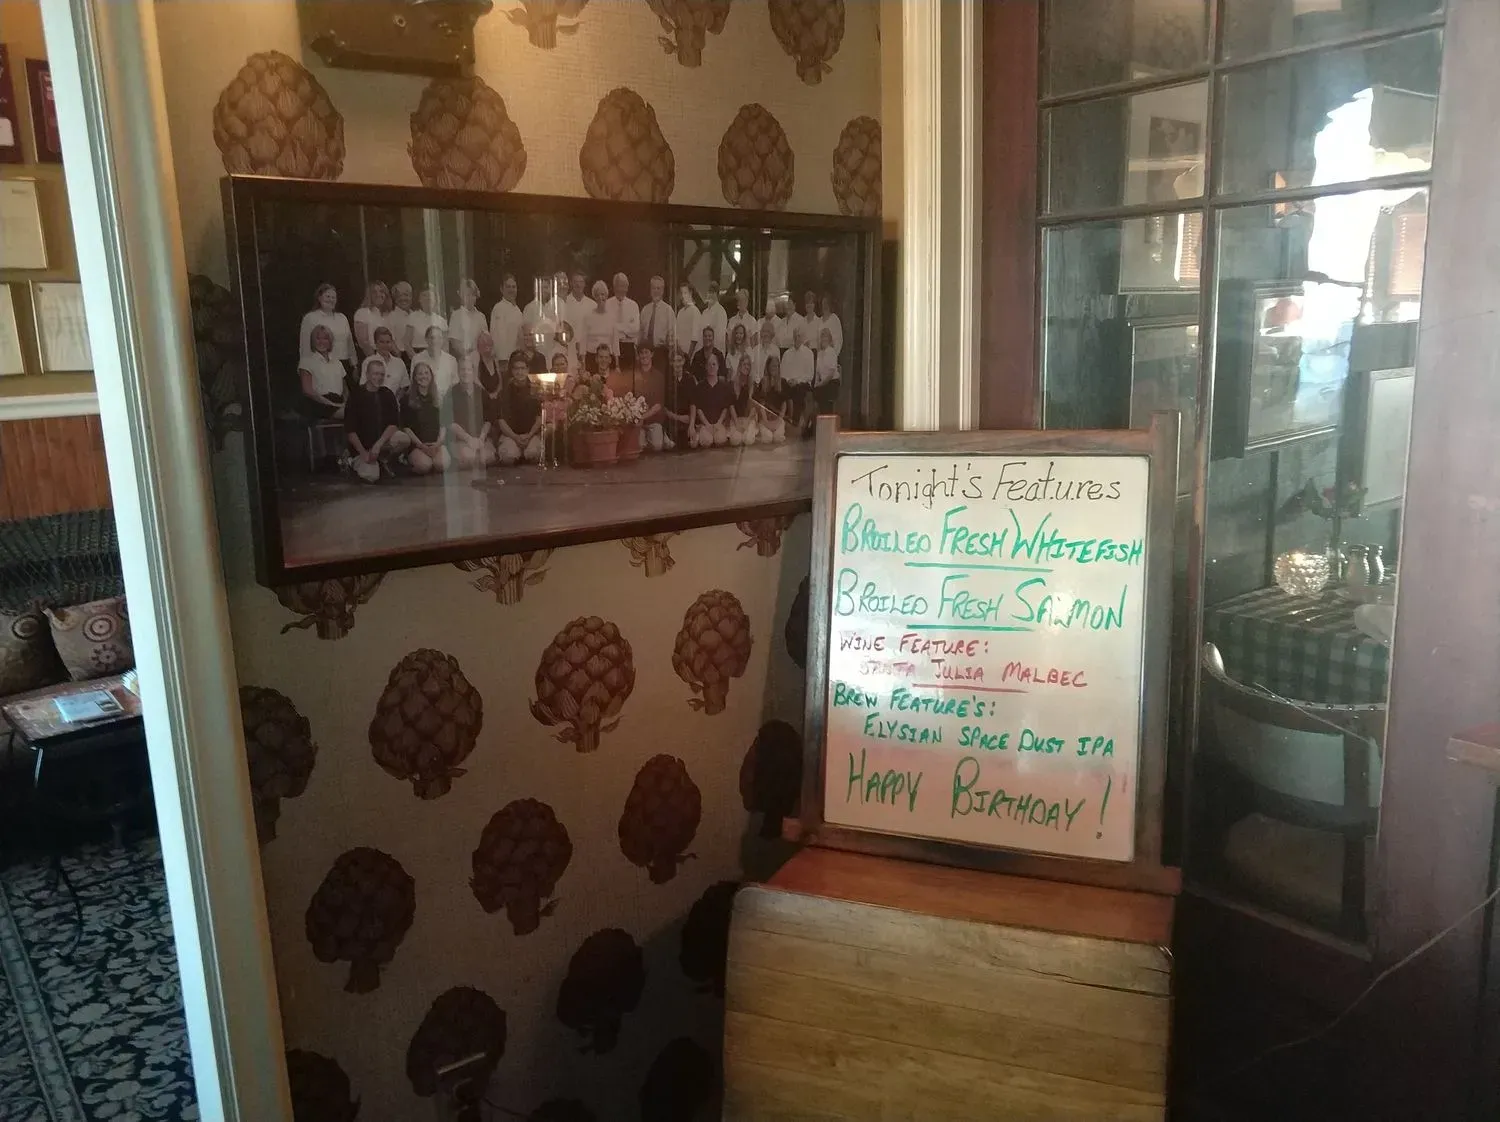 Tonight's Features
BROILED FRESH WHITEFISH
BROILED FRESH SALMON
WINE FEATURE:
SANTA JULIA MALBEC
BREW FEATURE'S:
ELYSIAN SPACE DUST IPA
HAPPY BIRTHDAY!